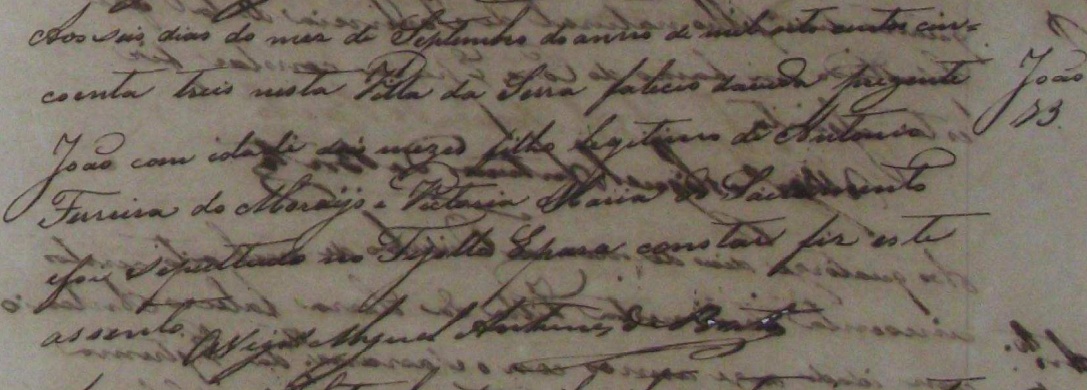 Aos seis dias do mez de Septembro do anno de mil oito centos cin=
coenta treis nesta Villa da Serra faleceo da vida prezente
João
23
João com idade de seis mezes filho legitimo de Antonio
Ferreira do e Victoria Maria do Sacramento
e foi sepultado no Epara constar fiz este
assento. OVigrº Miguel Antunes de